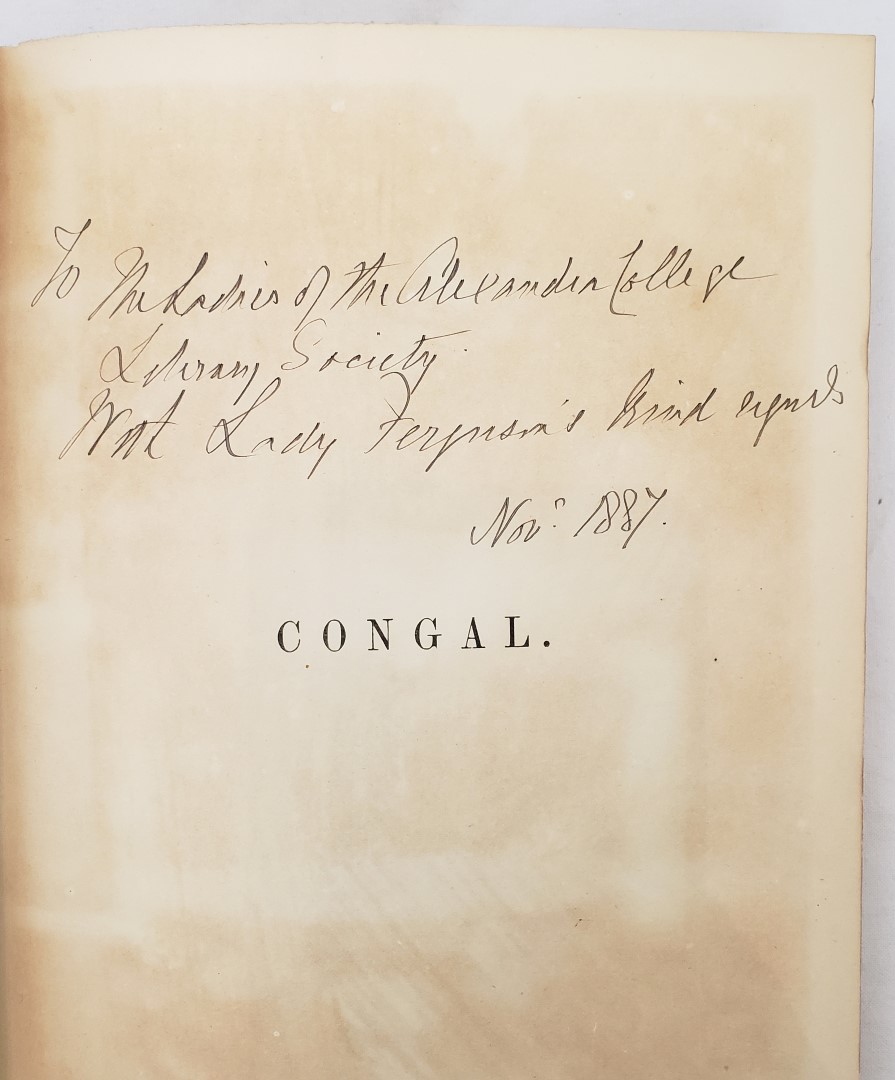 To The Ladies of the Alexandra College
Literary Society.
With Lady Ferguson's kind regards
Novr 1887.
CONGAL.